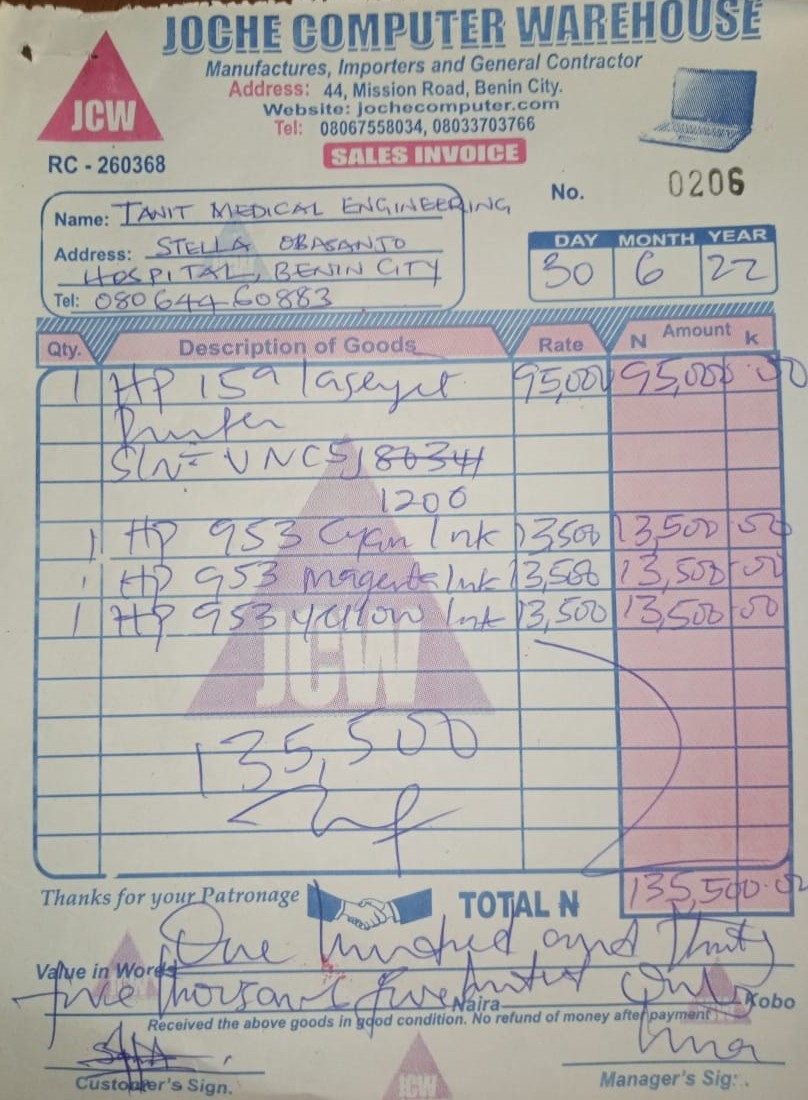 JOCHE COMPUTER WAREHOUSE
Manufactures, Importers and General Contractor
Address: 44, Mission Road, Benin City.
Website: jochecomputer.com
Tel: 08067558034, 08033703766
JCW
RC - 260368
SALES INVOICE
No. 0206
Name: TANIT MEDICAL ENGINEERING
Address: STELLA OBASANJO
HOSPITAL, BENIN CITY
Tel: 08064460883
DAY MONTH YEAR
30 6 22
Qty. Description of Goods Rate N Amount k
1 HP 159 laserjet 95,000 95,000.00
Printer
S/N= VNC5J
1200
1 HP 953 Cyan Ink 13,500 13,500.00
1 HP 953 Magenta Ink 13,500 13,500.00
1 HP 953 Yellow Ink 13,500 13,500.00
JCW
135,500
135,500.00
Thanks for your Patronage TOTAL N
Value in Words One hundred and Thirty
five Thousand five hundred Naira only Kobo
Received the above goods in good condition. No refund of money after payment
Customer's Sign. Manager's Sig:.
JCW